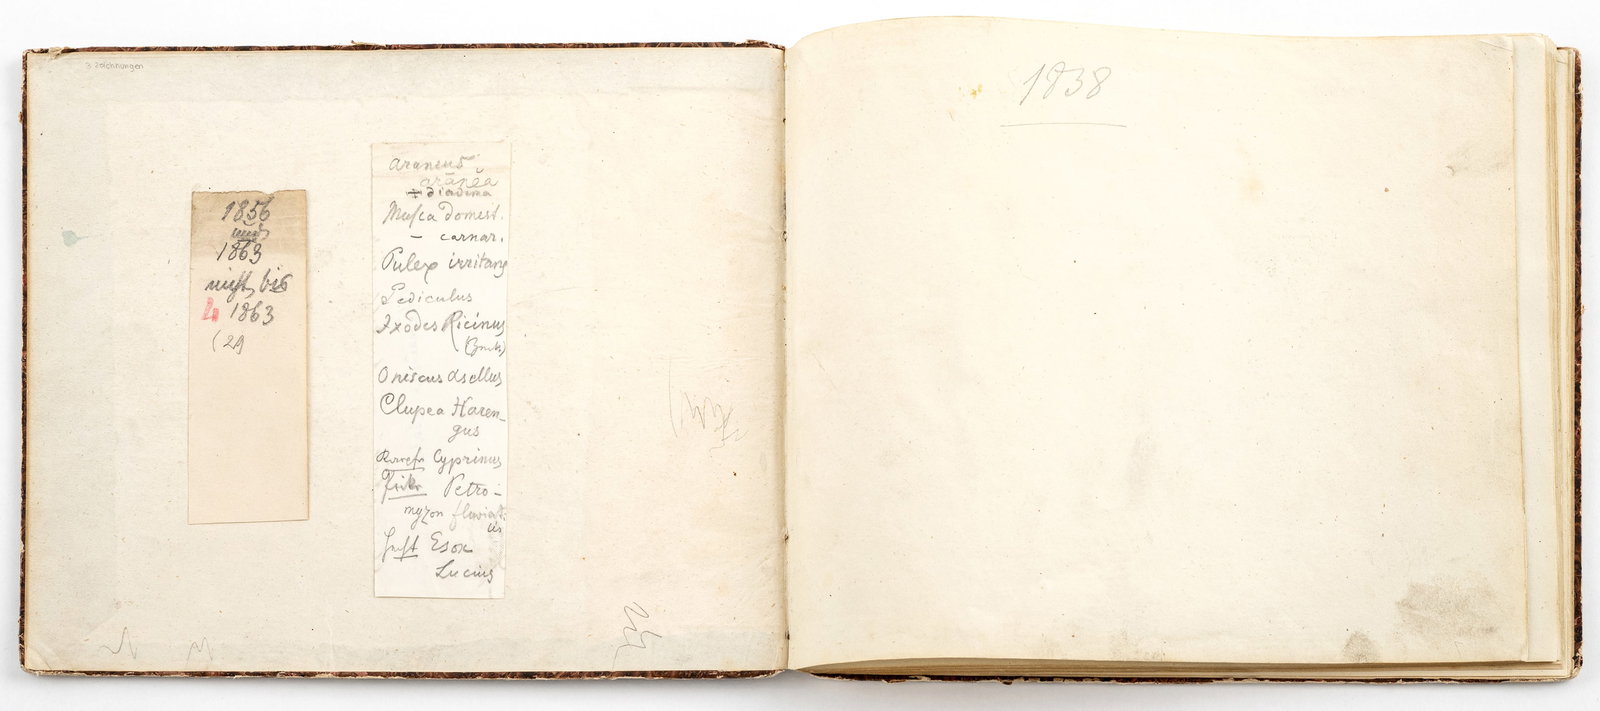 3 Zeichnungen
1856
und
1863
nicht, bis
1863
(29
araneus
arānĕa
diadema
Musca domest.
– carnar.
Pulex irritans
Pediculus
Ixodes Ricinus
Oniscus Asellus
Clupea Haren-
gus
Cyprinus
Petro-
myzon fluviat.
lis
Hecht Esox
Lucius
1838